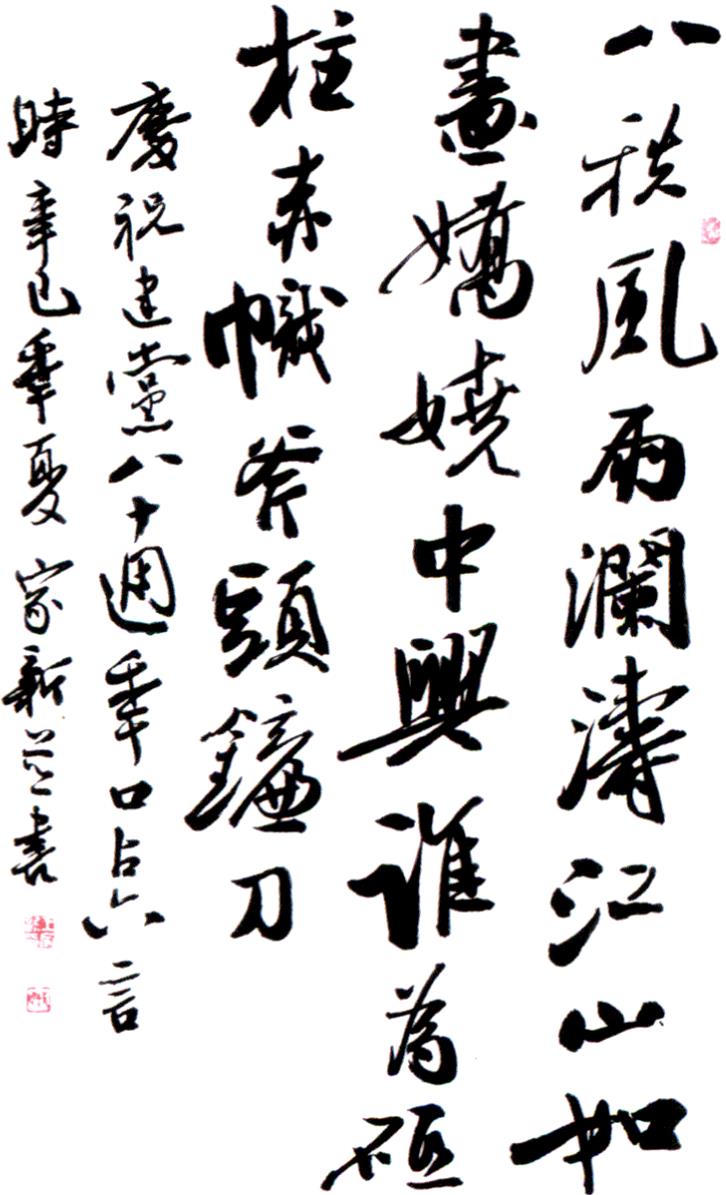 八秩風雨瀾濤江山如
畫嬌嬈中興誰為砥
柱赤幟斧頭鐮刀
慶祝建黨八十週年口占六言
時辛巳年夏家新並書